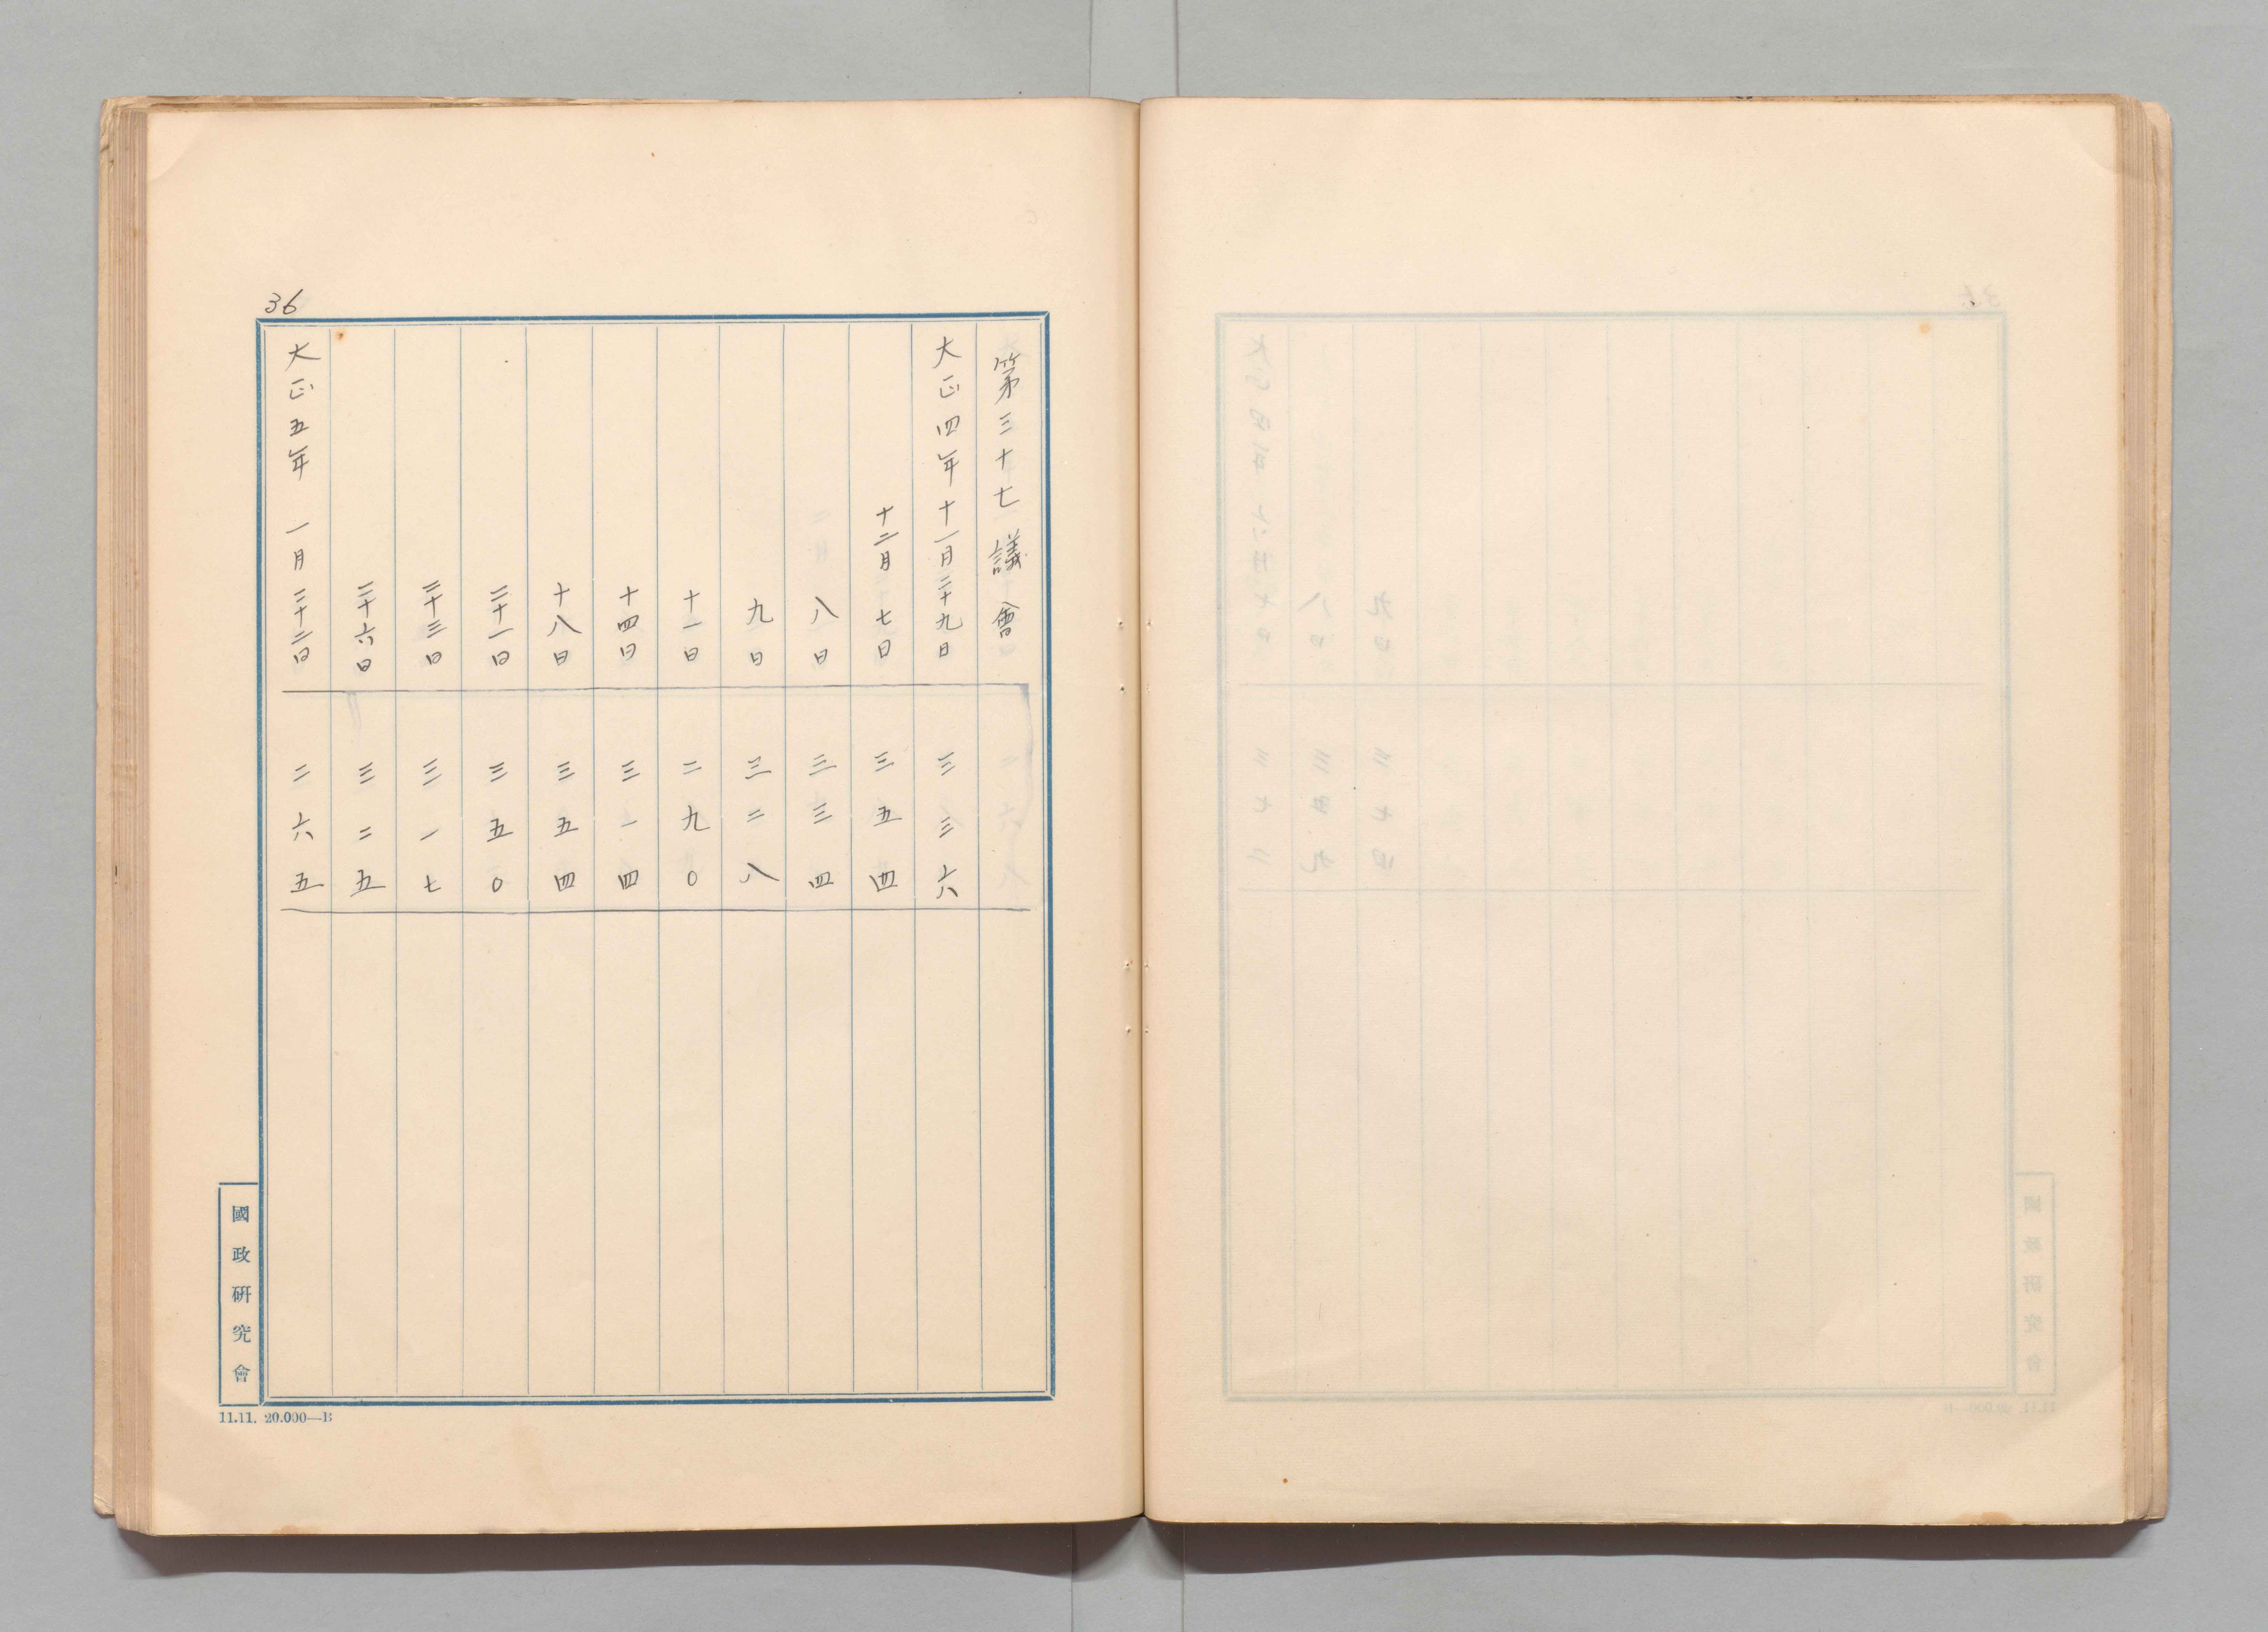 36
第三十七議會
大正四年十一月二十九日 三三六
十二月七日 三五四
八日 三三四
九日 三二八
十一日 二九〇
十四日 三一四
十八日 三五四
二十一日 三五〇
二十三日 三一七
二十六日 三二五
大正五年 一月二十二日 二六五
國政研究會
11.11. 20.000—B